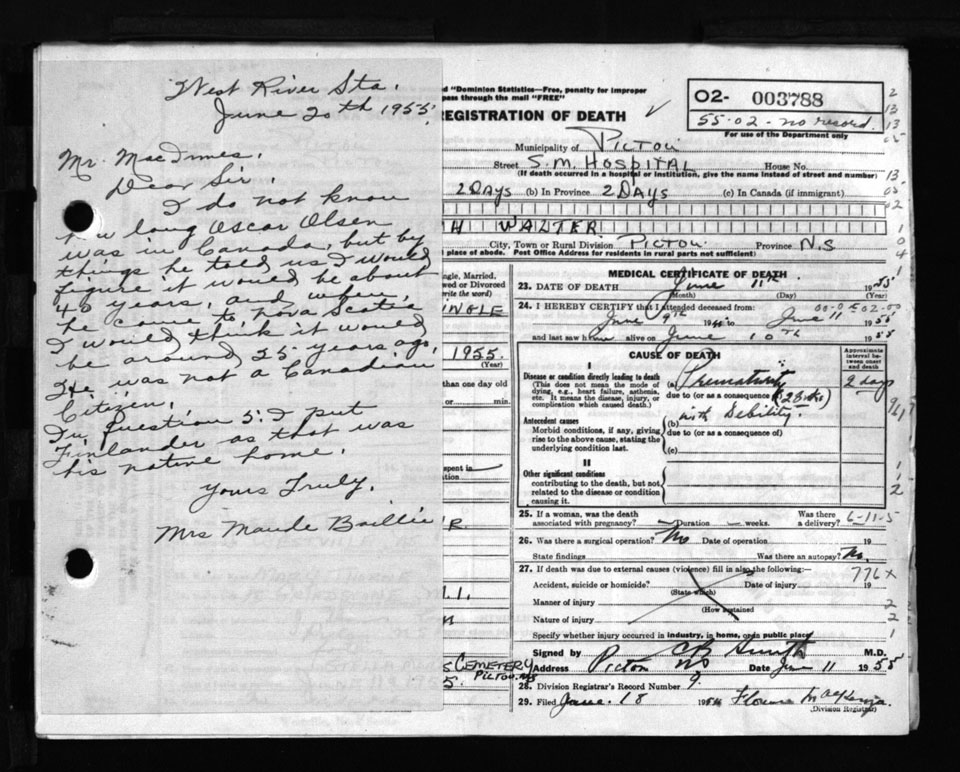 West River Sta.
June 20th 1955
Mr. MacInnes.
Dear Sir.
I do not know
how long Oscar Olsen
was in Canada, but by
things he told us I would
figure it would be about
40 years, and when
he come to Nova Scotia
I would think it would
be around 25 years ago.
He was not a Canadian
Citizen.
In question 5: I put
Finlander as that was
his native home.
Yours Truly,
Mrs Maude Baillie
"Dominion Statistics—Free, penalty for improper
pass through the mail "FREE"
REGISTRATION OF DEATH
02- 003788
55-02-no record.
For use of the Department only
Municipality of PICTOU
Street S.M. HOSPITAL House No.
(If death occurred in a hospital or institution, give the name instead of street and number)
2 DAYS (b) In Province 2 DAYS (c) In Canada (if immigrant)
H WALTER
City, Town or Rural Division PICTOU Province N.S
place of abode. Post Office Address for residents in rural parts not sufficient)
Single, Married,
Widowed or Divorced
(write the word)
SINGLE
1955
(Year)
than one day old
or min.
spent in
MEDICAL CERTIFICATE OF DEATH
23. DATE OF DEATH June 11th 1955
(Month) (Day) (Year)
24. I HEREBY CERTIFY that I attended deceased from
June 9th 1955 to June 11 1955
and last saw him alive on June 10th 1955
CAUSE OF DEATH
Approximate interval between onset and death
I
Disease or condition directly leading to death
(This does not mean the mode of
dying e.g., heart failure, asthenia,
etc. It means the disease, injury, or
complication which caused death.)
(a) Prematurity 2 days
due to (or as a consequence of)
Antecedent causes
Morbid conditions, if any, giving
rise to the above cause, stating the
underlying condition last.
(b) with Debility.
due to (or as a consequence of)
(c)
II
Other significant conditions
contributing to the death, but not
related to the disease or condition
causing it.
25. If a woman, was the death
associated with pregnancy? — Duration — weeks.
Was there
a delivery? 6-11-5
26. Was there a surgical operation? No Date of operation 19
State findings Was there an autopsy? No.
27. If death was due to external causes (violence) fill in also the following:—
776x
Accident, suicide or homicide? Date of injury 19
(State which)
Manner of injury
(How sustained
Nature of injury
Specify whether injury occurred in industry, in home, or in public place
Signed by CB Smith M.D.
Address Pictou NS Date June 11 1955
CEMETERY
PICTOU, NS
28. Division Registrar's Record Number 9
29. Filed June. 18 Florence McKenzie
(Division Registrar)